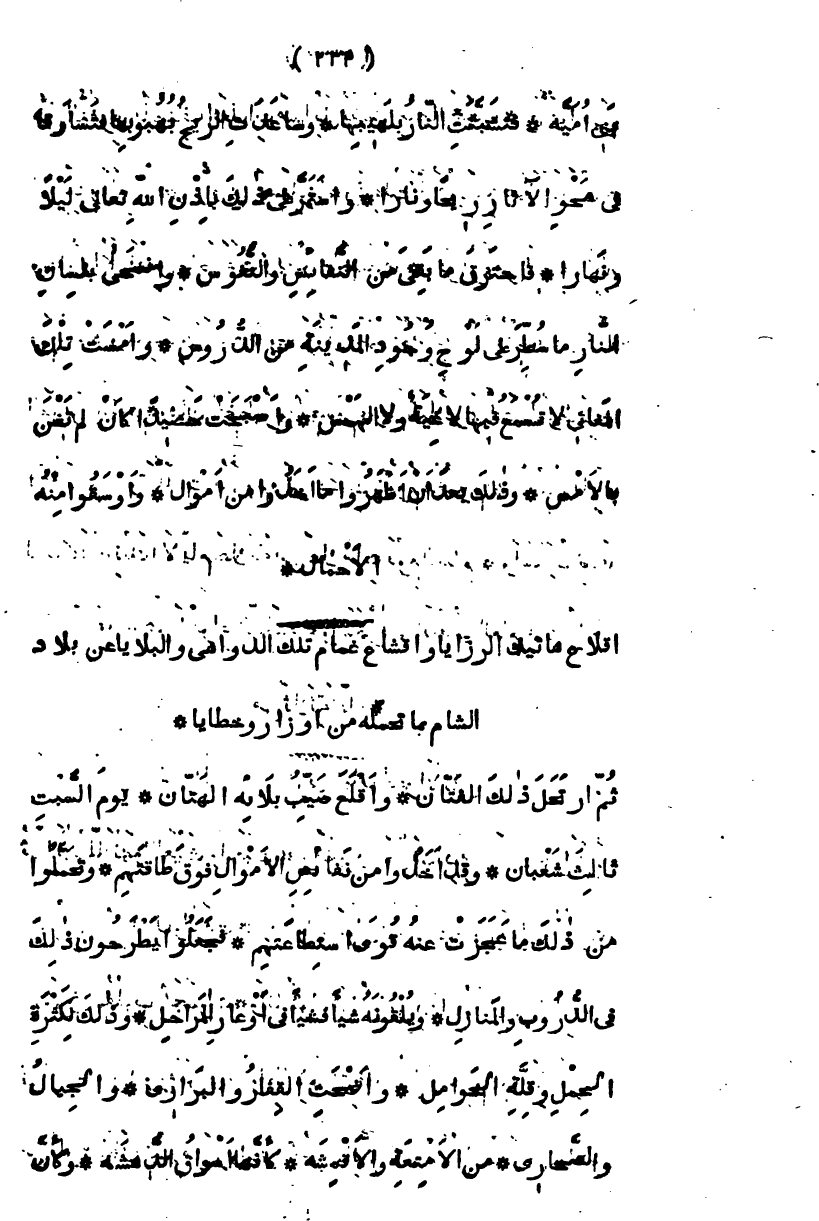 ( ٢٣٣ )
بني أمية * فتشبثت النار بلهيبها * وساعدت الريح بهبوبها
في محو الآثار ريحا ونارا * واستمر على ذلك بإذن الله تعالى ليلا
ونهارا * فاحترق ما بقي من النفائس والنفوس * وانمحى بلسان
النار ما سطر على لوح وجود المدينة من الدروس * وأمست تلك
المغاني لا تسمع فيها لاغية ولا الهمس * وأصبحت حصيدا كأن لم تغن
بالأمس * وذلك بعد أن ظهروا ما أخذوا من أموال * وأوسقوا منه
الأحمال *
اقلاع هاتيك الرزايا وانقشاع غمام تلك الدواهي والبلايا عن بلاد
الشام بما تحمله من أوزار وخطايا *
ثُمّ ارتَحَلَ ذلكَ الفتّان * وأقلَعَ صَيِّبُ بلائه الهتّان * يومَ السبتِ
ثالثَ شَعْبان * وقد أخذوا من نفائس الأموال فوق طاقتهم * وتحمّلوا
من ذلكَ ما عَجَزَتْ عنه قُوَى استطاعتهم * فجعلوا يطرحون ذلك
في الدروب والمنازل * ويلقونه شيأ فشيأ في أوعار المراحل * وذلك لكثرة
الحمل وقلة الحوامل * وأضحت القفار والبراري * والجبال
والصحاري * من الأمتعة والأقمشة * كأنها سوق الدهشة * وكأن